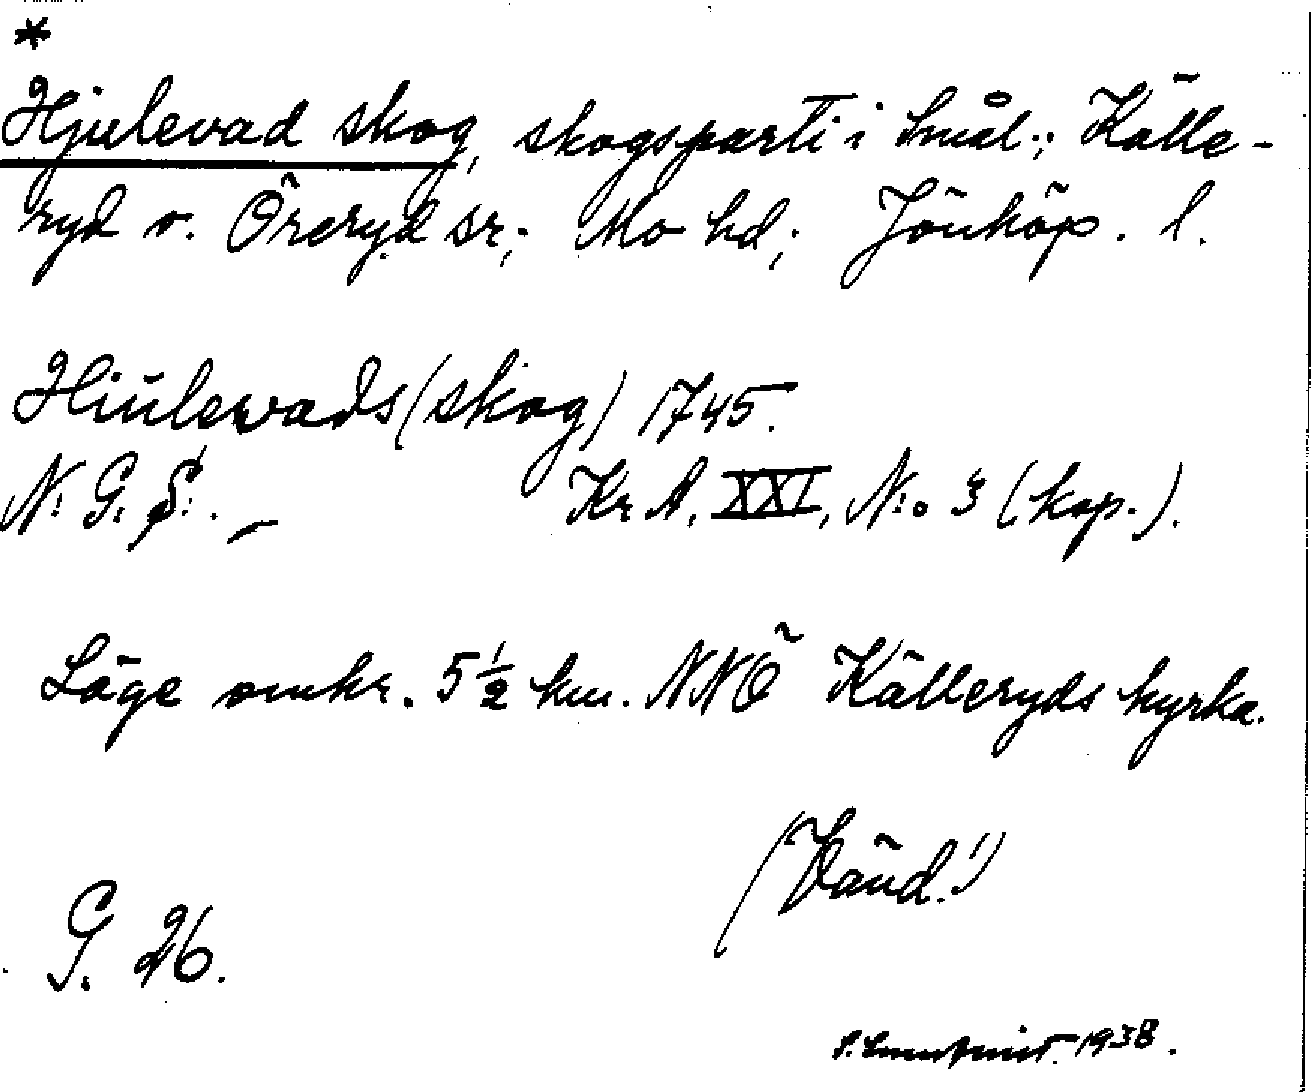 *
Hjulevad skog, skogsparti i Smål.; Källe-
ryd o. Öreryd sr; Mo hd; Jönköp. l.
Hiulevads (skog) 1745.
N. G. S. – Kr A. XXI, N:o 3 (kop.).
Läge omkr. 5 1/2 km. NNÖ Källeryds kyrka.
(Vänd!)
G. 26.
1938.